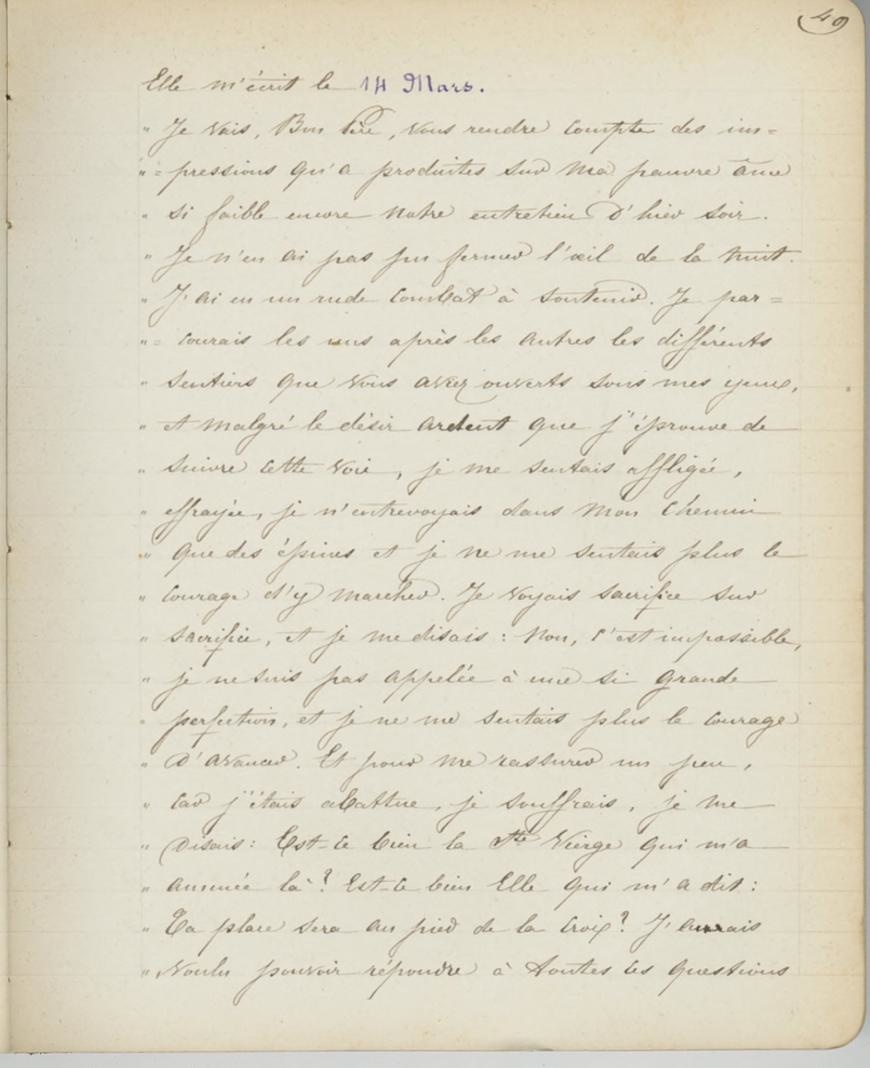 49
Elle m'écrit le 14 Mars.
" Je vais, Bon Père, vous rendre compte des im=
" = pressions qu'a produites sur ma pauvre âme
" si faible encore notre entretien d'hier soir.
" Je n'en ai pas pu fermer l'œil de la nuit.
" J'ai eu un rude combat à soutenir. Je par=
" = courais les uns après les autres les différents
" sentiers que vous avez ouverts sous mes yeux,
" et malgré le désir ardent que j'éprouve de
" suivre cette voie, je me sentais affligée,
" effrayée, je n'entrevoyais dans mon chemin
" que des épines et je ne me sentais plus le
" courage d'y marcher. Je voyais sacrifice sur
" sacrifice, et je me disais : Non, c'est impossible,
" je ne suis pas appelée à une si grande
" perfection, et je ne me sentais plus le courage
" d'avancer. Et pour me rassurer un peu,
" car j'étais abattue, je souffrais, je me
" disais : Est-ce bien la Ste Vierge qui m'a
" amenée là ? Est-ce bien Elle qui m'a dit :
" Ta place sera au pied de la Croix ? J'aurais
" voulu pouvoir répondre à toutes ces questions